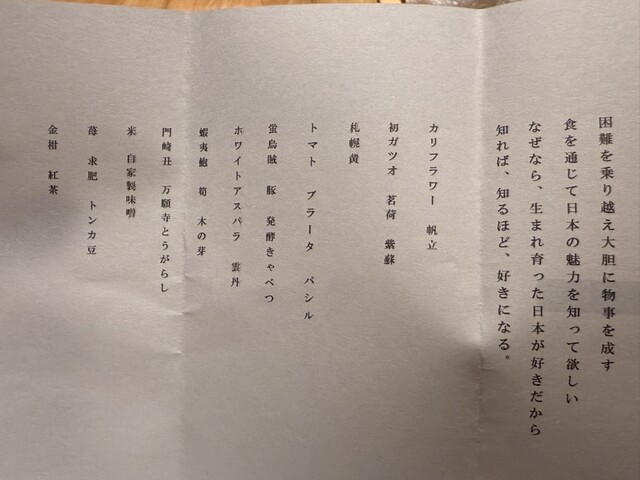 困難を乗り越え大胆に物事を成す
食を通じて日本の魅力を知って欲しい
なぜなら、生まれ育った日本が好きだから
知れば、知るほど、好きになる。
カリフラワー 帆立
初ガツオ 茗荷 紫蘇
札幌黄
トマト ブラータ バジル
蛍烏賊 豚 発酵きゃべつ
ホワイトアスパラ 雲丹
蝦夷鮑 筍 木の芽
門崎丑 万願寺とうがらし
米 自家製味噌
苺 求肥 トンカ豆
金柑 紅茶